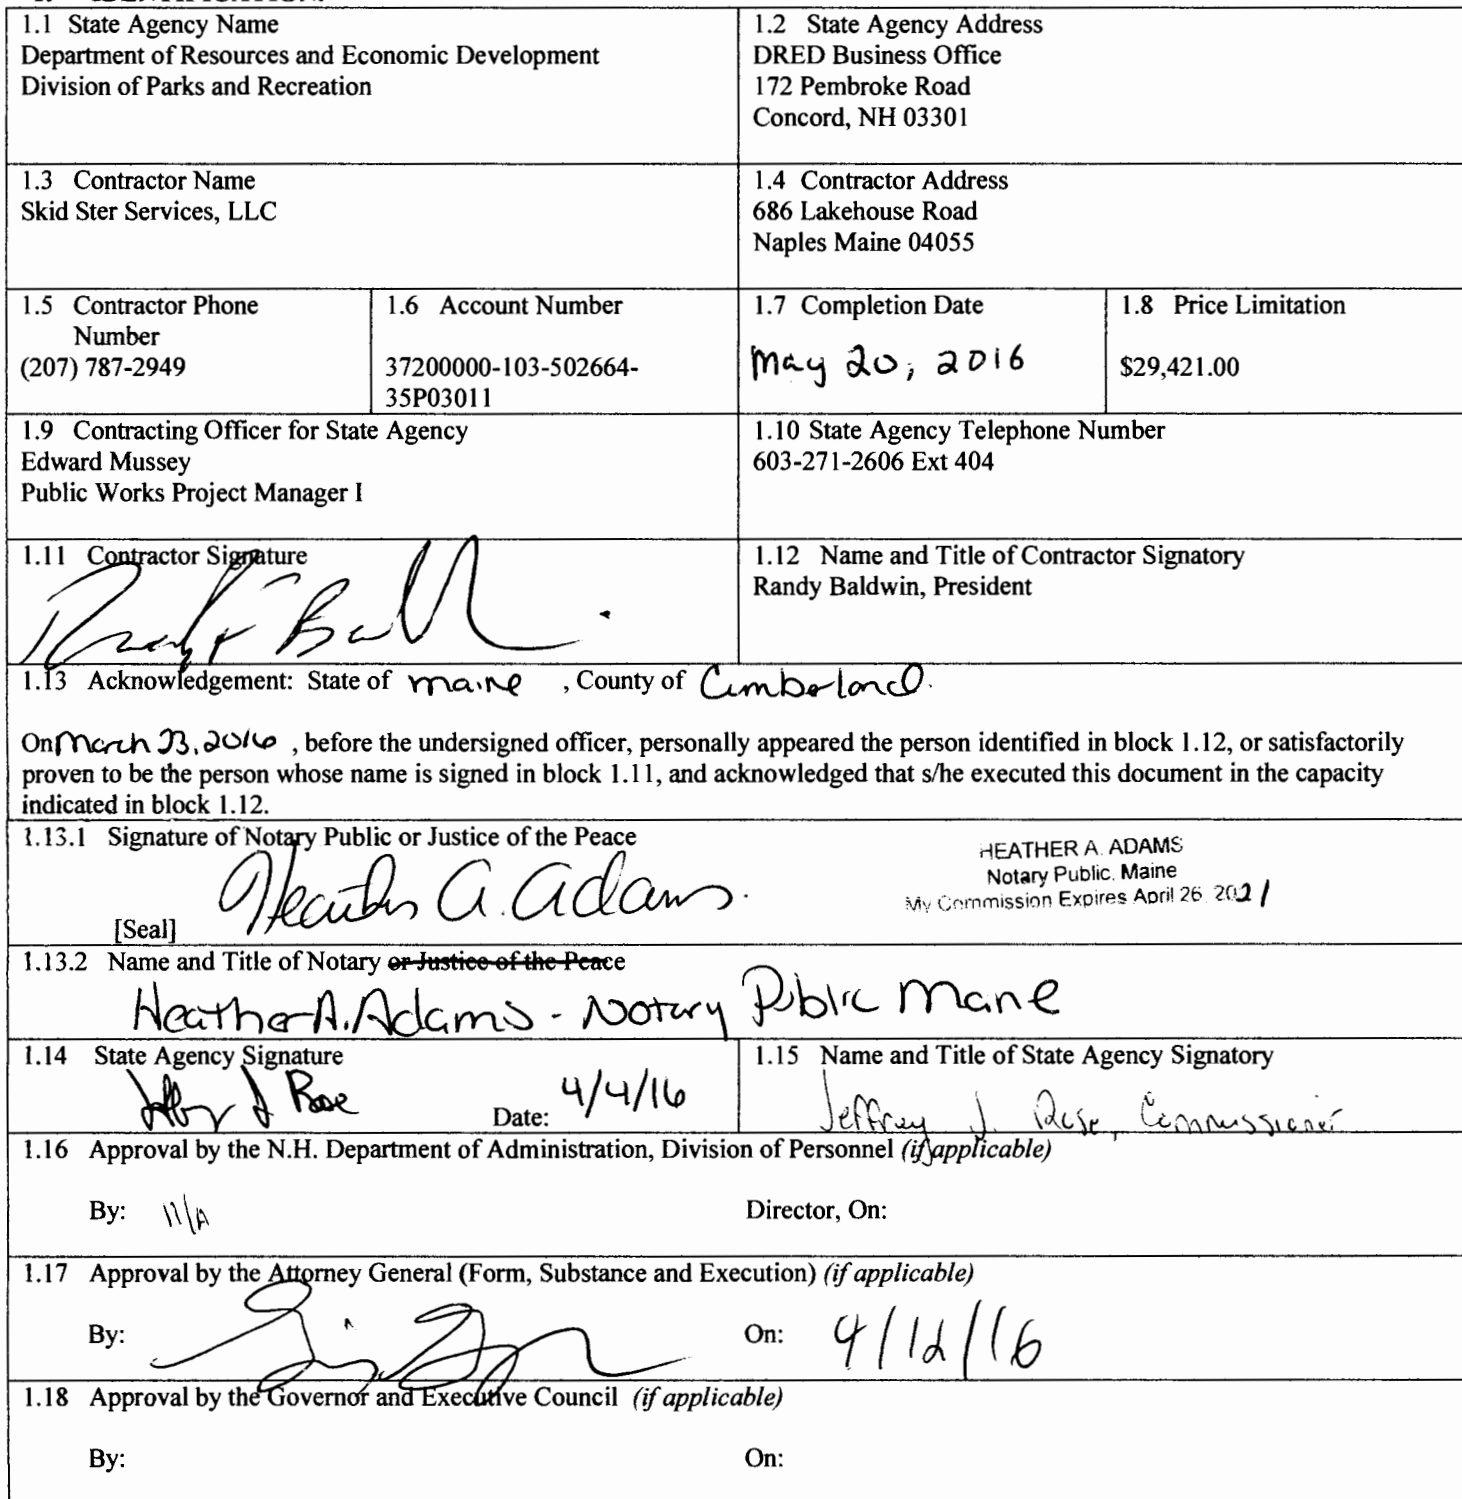 1.1 State Agency Name
Department of Resources and Economic Development
Division of Parks and Recreation
1.2 State Agency Address
DRED Business Office
172 Pembroke Road
Concord, NH 03301
1.3 Contractor Name
Skid Ster Services, LLC
1.4 Contractor Address
686 Lakehouse Road
Naples Maine 04055
1.5 Contractor Phone
Number
(207) 787-2949
1.6 Account Number
37200000-103-502664-
35P03011
1.7 Completion Date
May 20, 2016
1.8 Price Limitation
$29,421.00
1.9 Contracting Officer for State Agency
Edward Mussey
Public Works Project Manager I
1.10 State Agency Telephone Number
603-271-2606 Ext 404
1.11 Contractor Signature
1.12 Name and Title of Contractor Signatory
Randy Baldwin, President
1.13 Acknowledgement: State of Maine , County of Cumberland.
On March 23, 2016 , before the undersigned officer, personally appeared the person identified in block 1.12, or satisfactorily
proven to be the person whose name is signed in block 1.11, and acknowledged that s/he executed this document in the capacity
indicated in block 1.12.
1.13.1 Signature of Notary Public or Justice of the Peace
Heather A. Adams.
[Seal]
HEATHER A. ADAMS
Notary Public, Maine
My Commission Expires April 26, 2021
1.13.2 Name and Title of Notary or Justice of the Peace
Heather A. Adams - Notary Public Maine
1.14 State Agency Signature
Jeffrey J Rose
Date: 4/4/16
1.15 Name and Title of State Agency Signatory
Jeffrey J. Rose, Commissioner
1.16 Approval by the N.H. Department of Administration, Division of Personnel (if applicable)
By: N/A
Director, On:
1.17 Approval by the Attorney General (Form, Substance and Execution) (if applicable)
By:
On: 4/12/16
1.18 Approval by the Governor and Executive Council (if applicable)
By:
On: